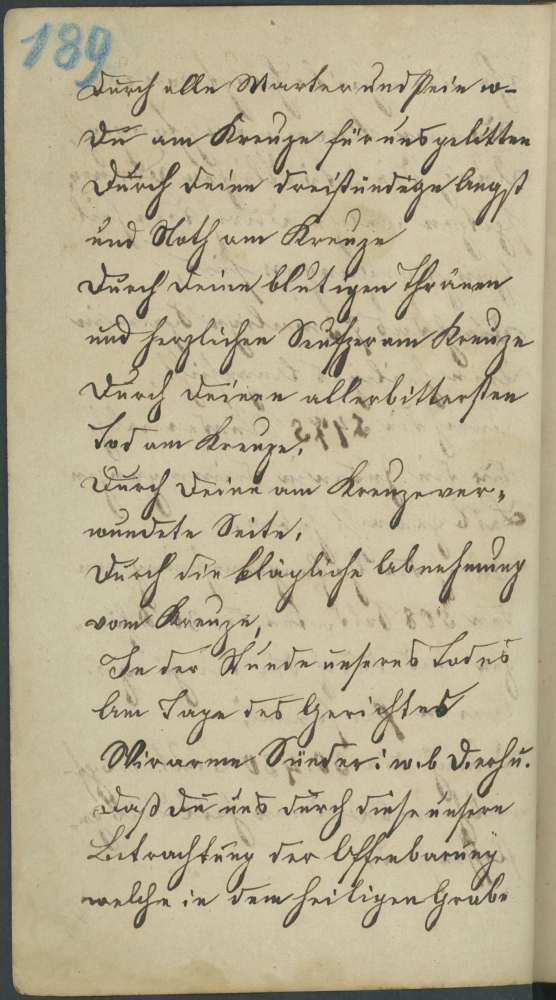 189
Durch alle Marter und Pein w-
Du am Kreuze für uns gelitten
Durch deine dreistündige Angst
und Noth am Kreuze
Durch deine blutigen Thränen
und herzlichen Seufzer am Kreuze
Durch deinen allerbittersten
Tod am Kreuze,
Durch deine am Kreuze ver-
wundete Seite,
Durch die klägliche Abnehmung
vom Kreuze,
In der Stunde unseres Todes
Am Tage des Gerichtes
Wir arme Sünder: w. b D. erh u.
daß du uns durch diese unsere
Betrachtung der Offenbarung
welche in dem heiligen Grabe